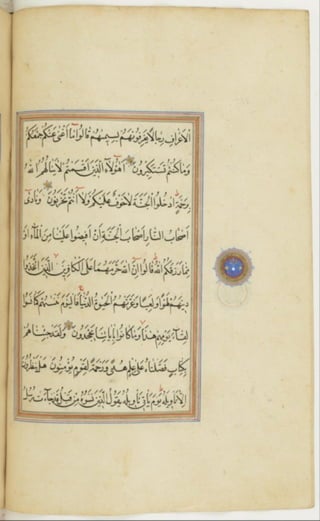 الاعراف رجالا يعرفونهم بسيمهم قالوا ما اغنى عنكم جمعكم
وما كنتم تستكبرون اهؤلاء الذين اقسمتم لا ينالهم الله
برحمة ادخلوا الجنة لا خوف عليكم ولا انتم تحزنون ونادى
اصحاب النار اصحاب الجنة ان افيضوا علينا من الماء او
مما رزقكم الله قالوا ان الله حرمهما على الكافرين الذين اتخذوا
دينهم لهوا ولعبا وغرتهم الحيوة الدنيا فاليوم ننسيهم كما نسوا
لقاء يومهم هذا وما كانوا باياتنا يجحدون ولقد جئناهم
بكتاب فصلناه على علم هدى ورحمة لقوم يؤمنون هل ينظرون
الا تاويله يوم ياتي تاويله يقول الذين نسوه من قبل قد جاءت رسل